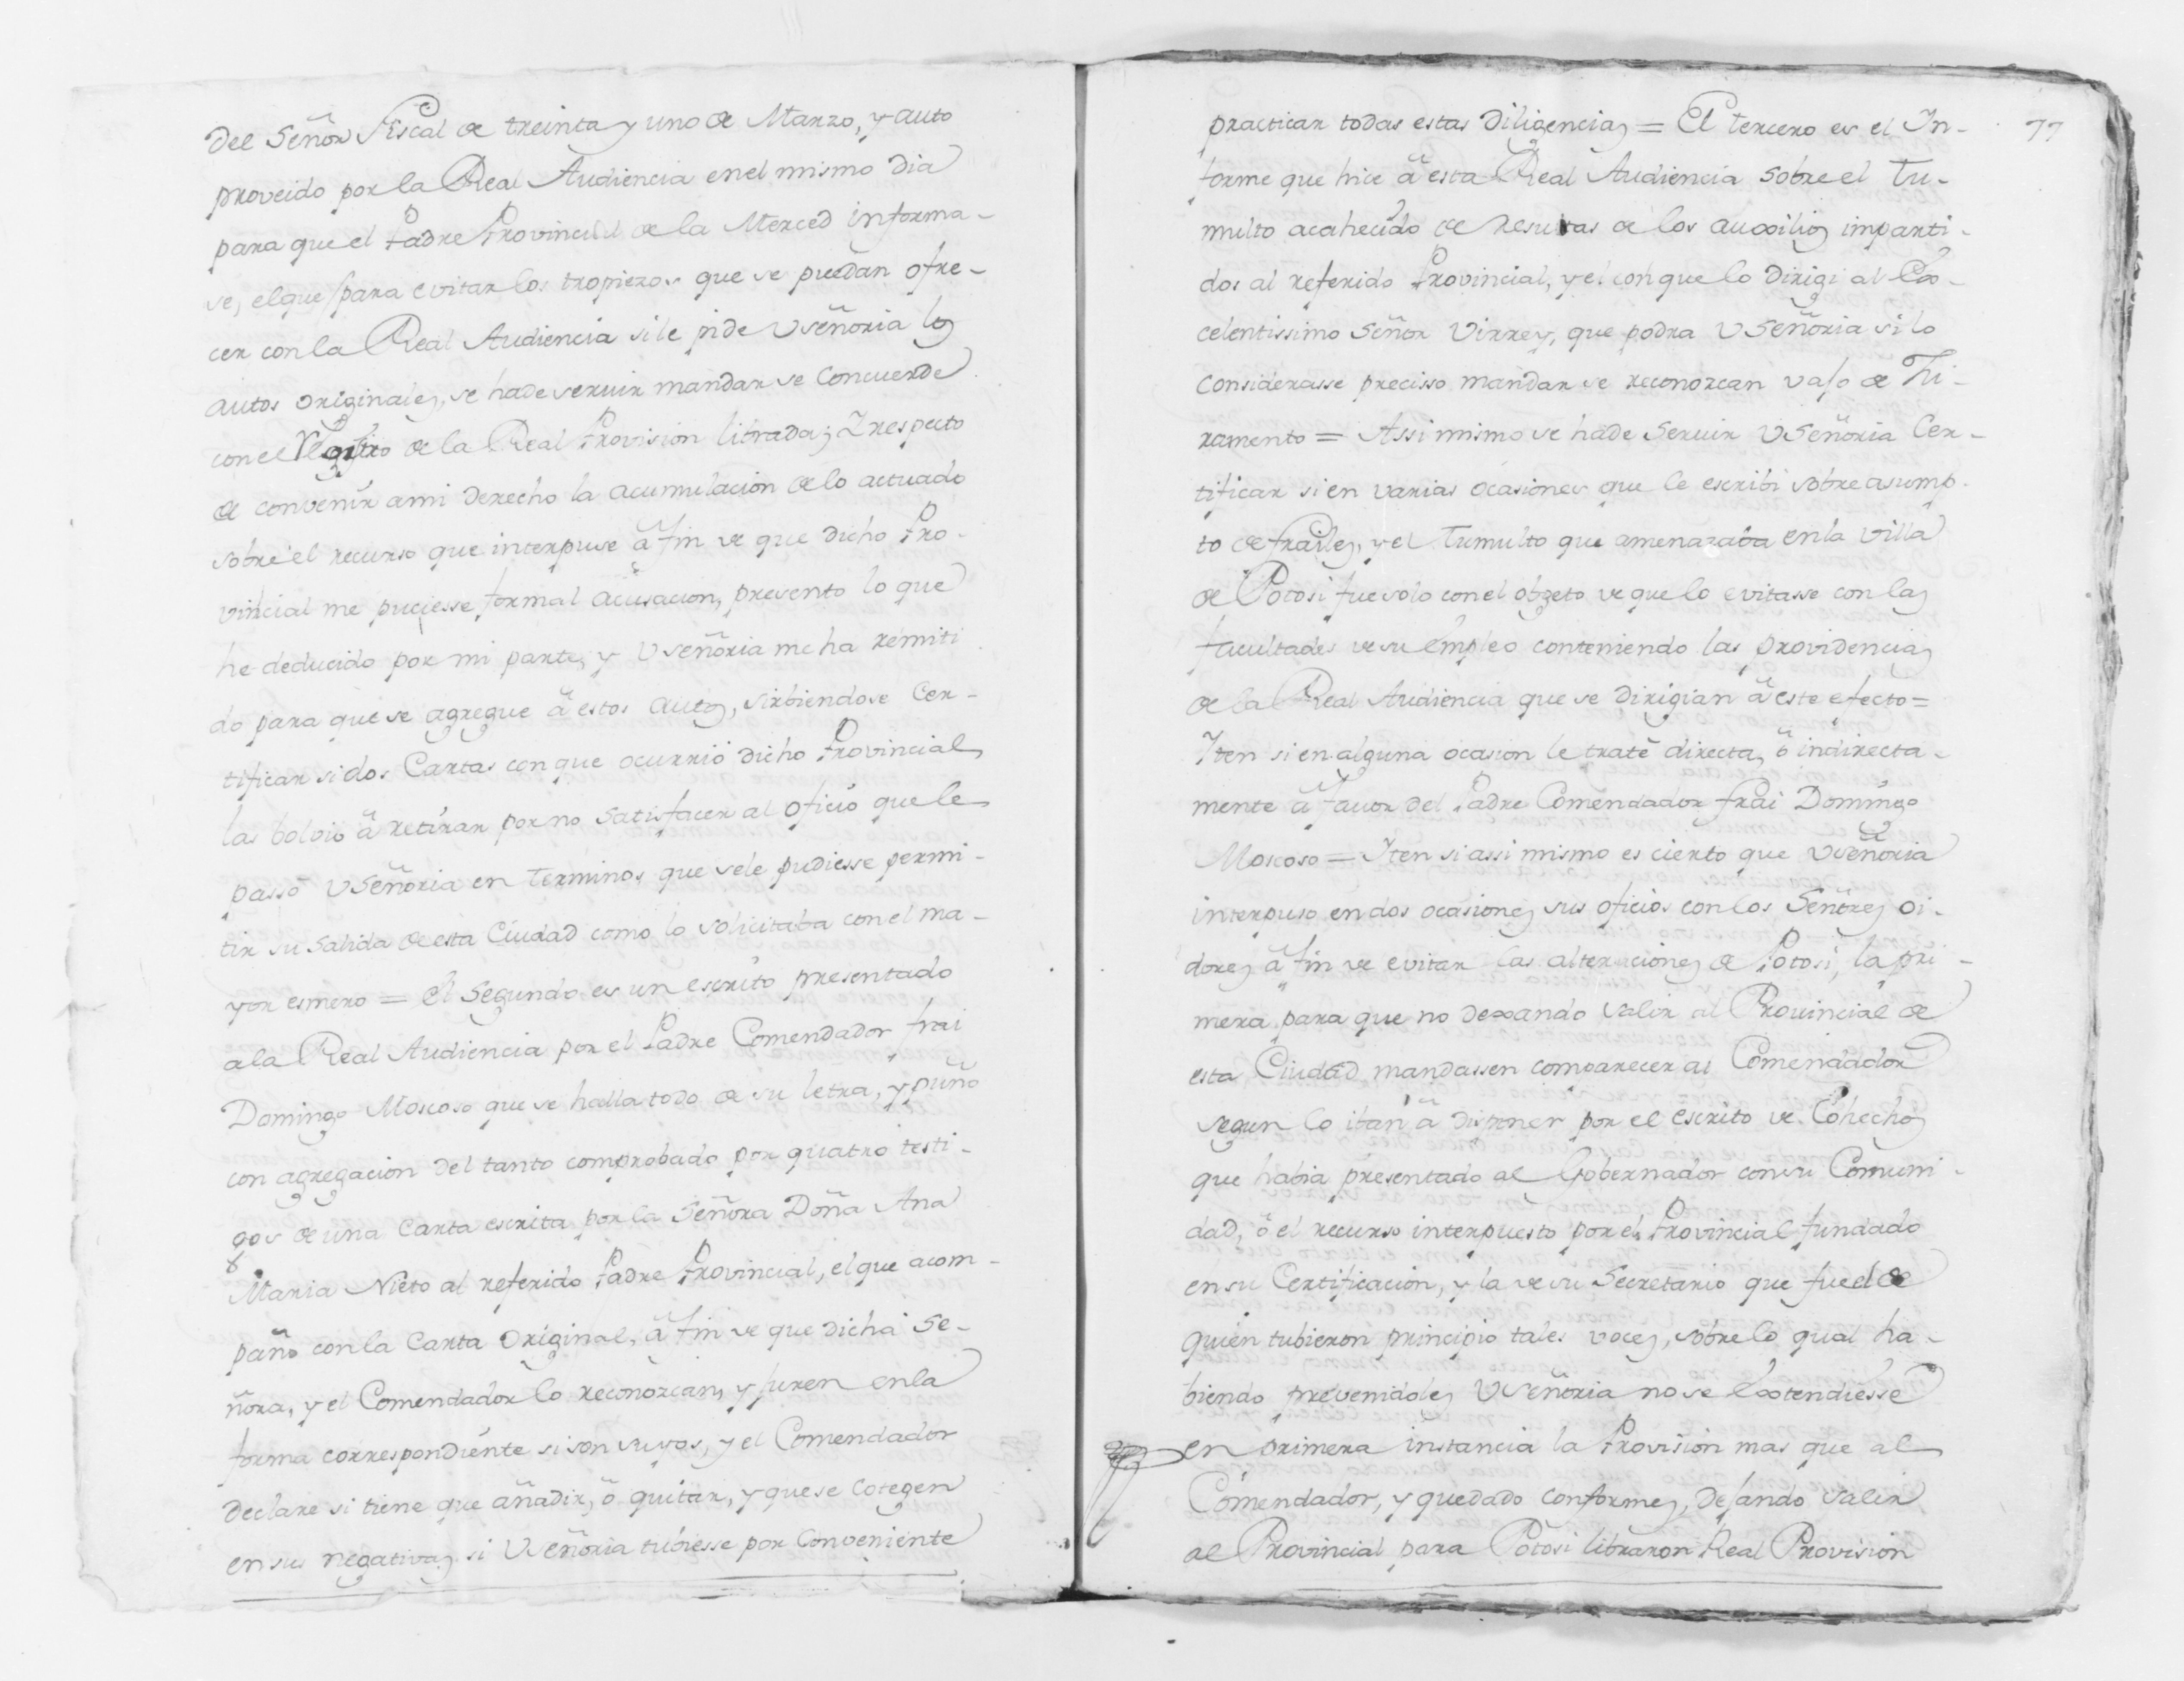 Del Señor Fiscal de treinta y uno de Marzo, y auto
proveido por la Real Audiencia en el mismo dia
para que el Padre Provincial de la Merced informa-
se, el que para evitar los tropiezos que se puedan ofre-
cer con la Real Audiencia si le pide Vseñoria los
autos originales, se ha de servir mandar se concuerde
con el Registro de la Real Provision librada; Y respecto
de convenir a mi derecho la acumulacion de lo actuado
sobre el recurso que interpuse â fin de que dicho Pro-
vincial me puciesse formal acusacion, presento lo que
he deducido por mi parte, y Vseñoria me ha remiti
do para que se agregue â estos autos, sirbiendose Cer-
tificar si dos Cartas con que ocurriô dicho Provincial,
las bolviô â retirar por no satisfacer al oficio que le
passô VSeñoria en terminos que se le pudiesse permi-
tir su salida de esta Ciudad como lo solicitaba con el ma-
yor esmero = el Segundo es un escrito presentado
a la Real Audiencia por el Padre Comendador frai
Domingo Moscoso que se halla todo de su letra, y puño
con agregacion del tanto comprobado por quatro testi-
gos de una Carta escrita por la Señora Doña Ana
Maria Nieto al referido Padre Provincial, el que acom-
paño con la Carta Original, â fin de que dicha Se-
ñora, y el Comendador lo reconozcan, y juren en la
forma correspondiente si son suyos, y el Comendador
declare si tiene que añadir, ô quitar, y que se Cotegen
en sus negativas si Vseñoria tubiesse por Conveniente
77
practicar todas estas Diligencias = El tercero es el In-
forme que hice â esta Real Audiencia sobre el Tu-
multo acahecido de resultas de los auxilios imparti-
dos al referido Provincial, y el con que lo dirigi al Ex-
celentissimo Señor Virrey, que podra VSeñoria si lo
considerasse precisso mandar se reconozcan vajo de Iu-
ramento = Assi mismo se hade Servir VSeñoria Cer-
tificar si en varias ocasiones que le escribi sobre asump-
to de frailes, y el Tumulto que amenazaba en la Villa
de Potosi fue solo con el obgeto de que lo evitasse con las
facultades de su Empleo conteniendo las providencias
de la Real Audiencia que se dirigian â este efecto =
Yten si en alguna ocasion le tratê directa, ô indirecta-
mente â favor del Padre Comendador frai Domingo
Moscoso = Yten si assi mismo es cierto que Vseñoria
interpuso en dos ocasiones sus oficios con los Señores Oi-
dores â fin de evitar las alteraciones de Potosi, la pri-
mera para que no dexando salir al Provincial de
esta Ciudad mandassen comparecer al Comendador
segun lo iban â disponer por el escrito de Cohechos
que habia presentado al Gobernador con su Comuni-
dad, ô el recurso interpuesto por el Provincial fundado
en su Certificacion, y la de su Secretario que fue de
quien tubieron principio tales voces, sobre lo qual ha-
biendo prevenidoles Vseñoria no se Extendiesse
en primera instancia la Provision mas que al
Comendador, y quedado conformes, dejando salir
al Provincial para Potosi libraron Real Provision